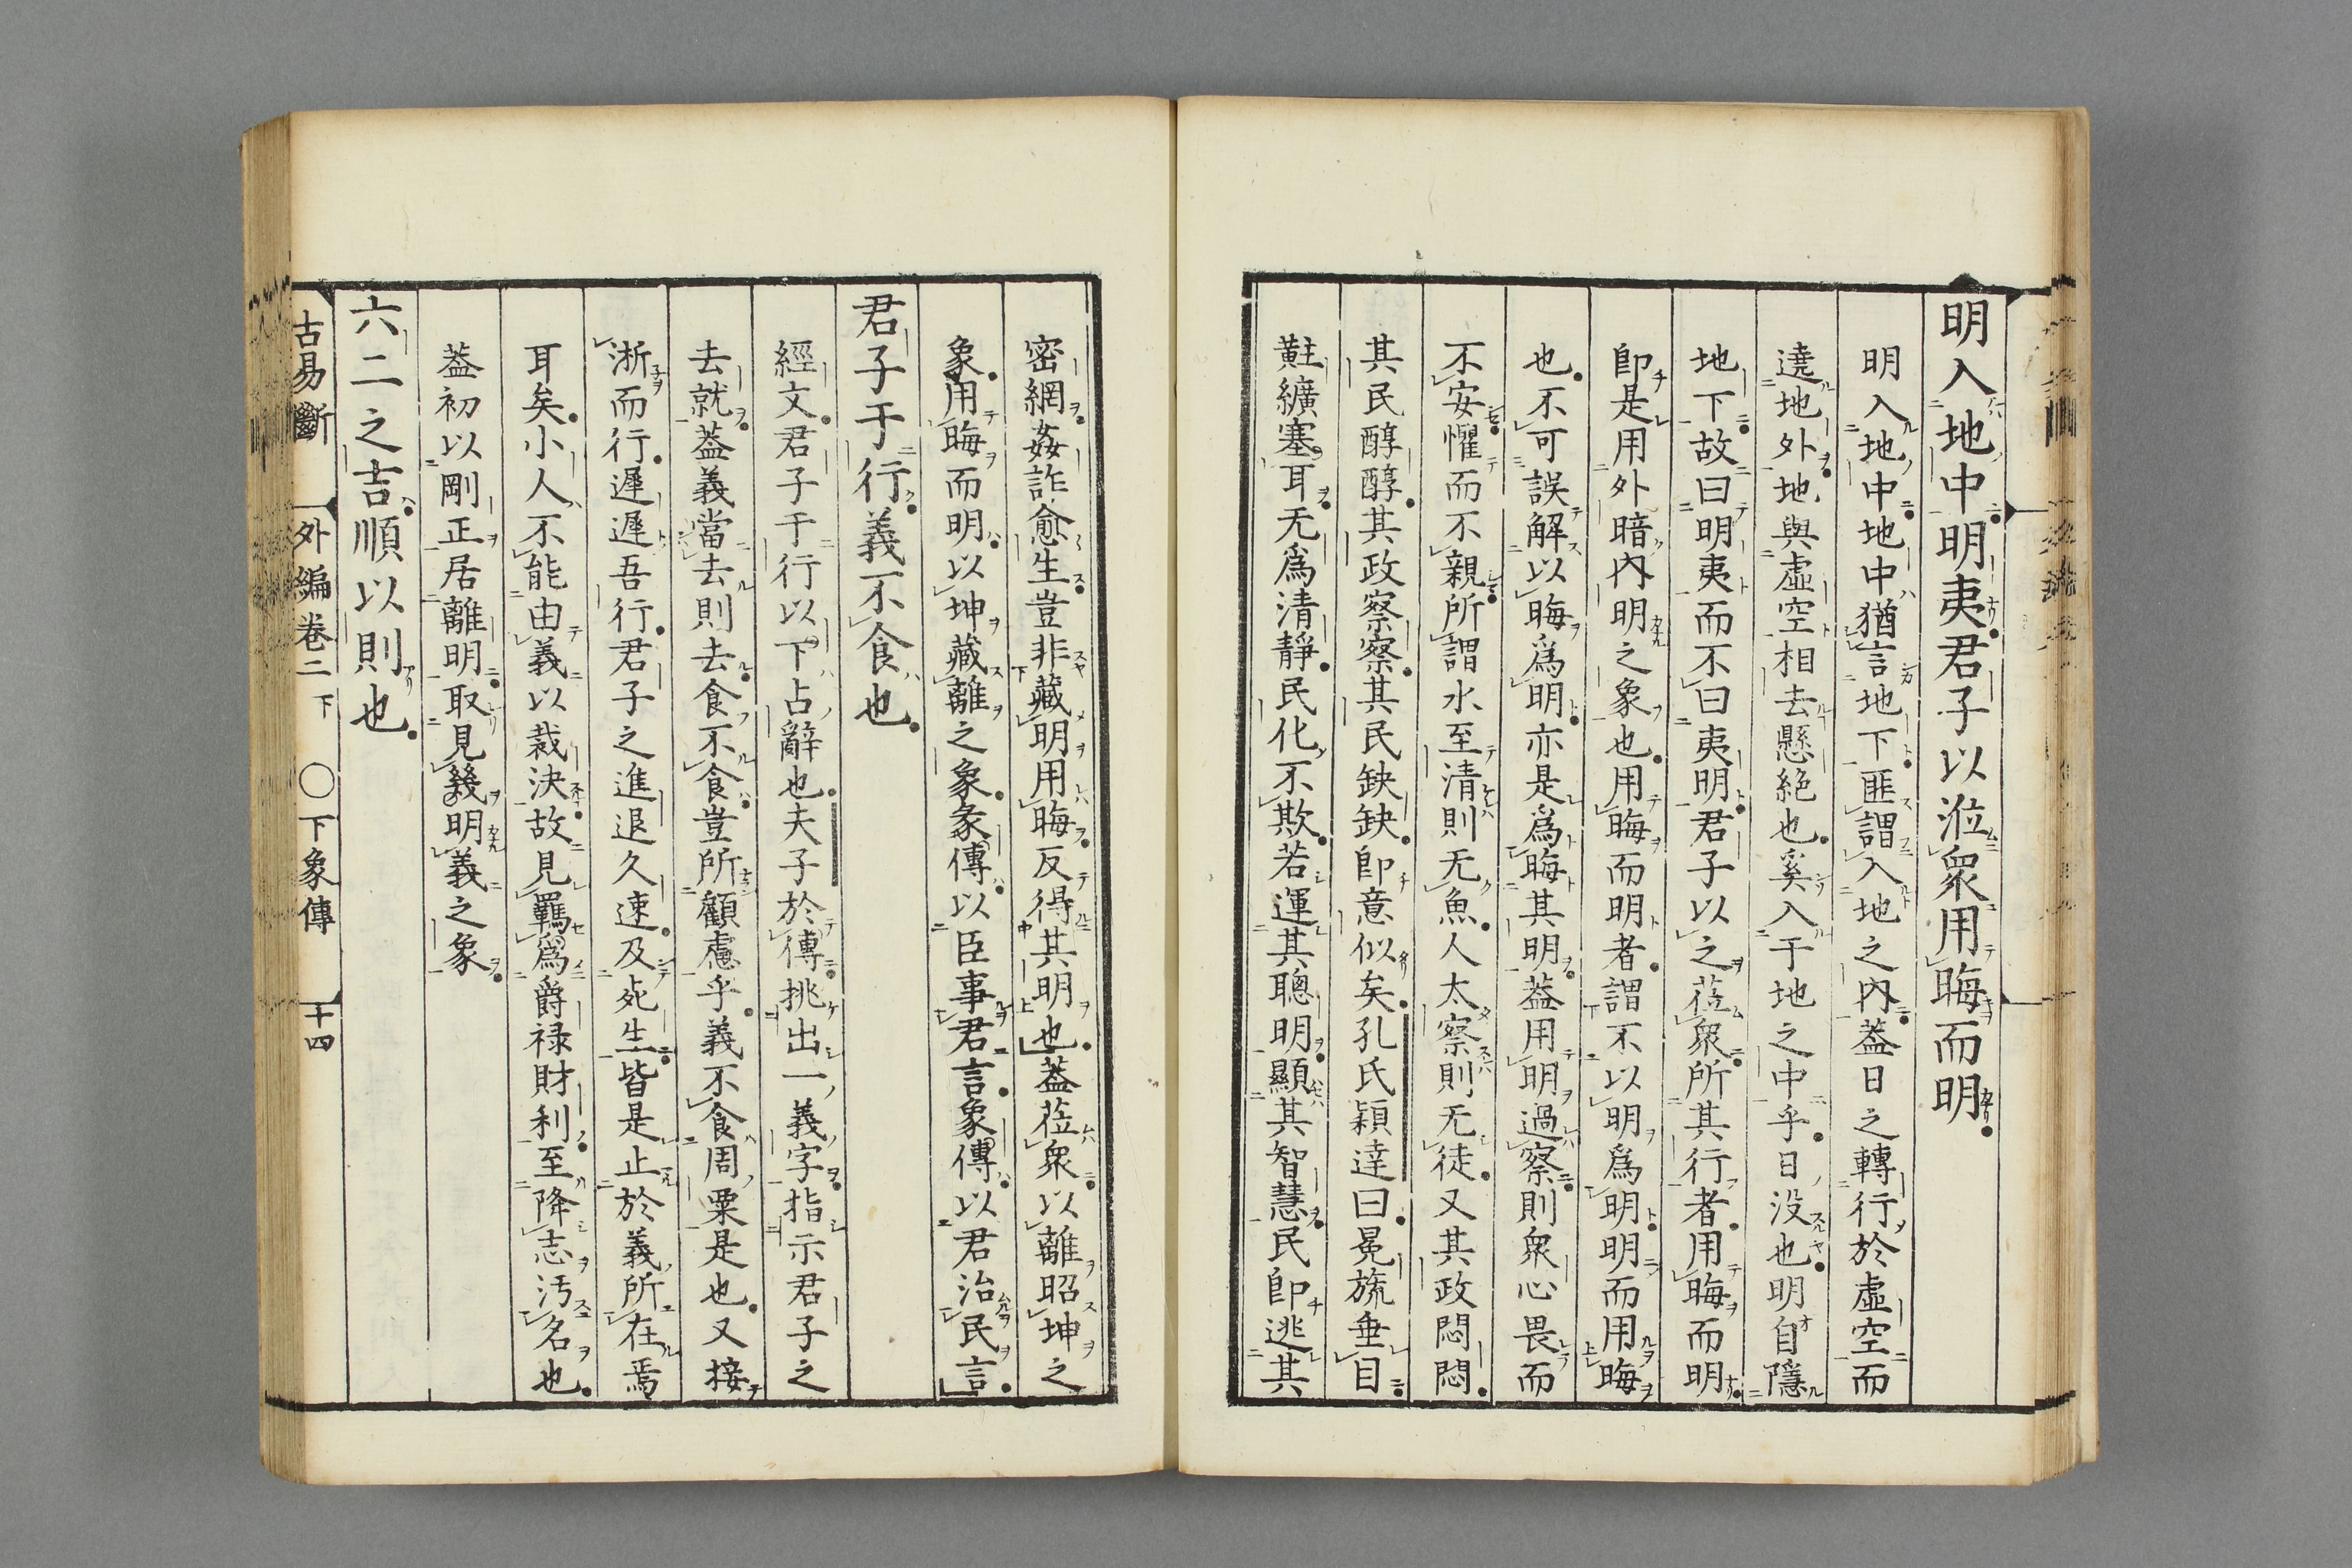 明入地中明夷君子以涖衆用晦而明
明入地中地中猶言地下匪謂入地之內葢日之轉行於虛空而
遶地外地與虛空相去懸絶也奚入于地之中乎日没也明自隱
地下故曰明夷而不曰夷明君子以之莅衆所其行者用晦而明
卽是用外暗內明之象也用晦而明者謂不以明爲明明而用晦
也不可誤解以晦爲明亦是爲晦其明葢用明過察則衆心畏而
不安懼而不親所謂水至清則无魚人太察則无徒又其政悶悶
其民醇醇其政察察其民缺缺卽意似矣孔氏穎達曰冕旒垂目
黈纊塞耳无爲清靜民化不欺若運其聰明顯其智慧民卽逃其
密網姦詐愈生豈非藏明用晦反得其明也葢莅衆以離昭坤之
象用晦而明以坤藏離之象彖傳以臣事君言象傳以君治民言
君子于行義不食也
經文君子于行以下占辭也夫子於傳挑出一義字指示君子之
去就葢義當去則去食不食豈所顧慮乎義不食周粟是也又接
淅而行遲遲吾行君子之進退久速及死生皆是止於義所在焉
耳矣小人不能由義以裁決故見羈爲爵祿財利至降志汚名也
葢初以剛正居離明取見幾明義之象
六二之吉順以則也
古易斷 外編卷二下 〇下象傳 十四